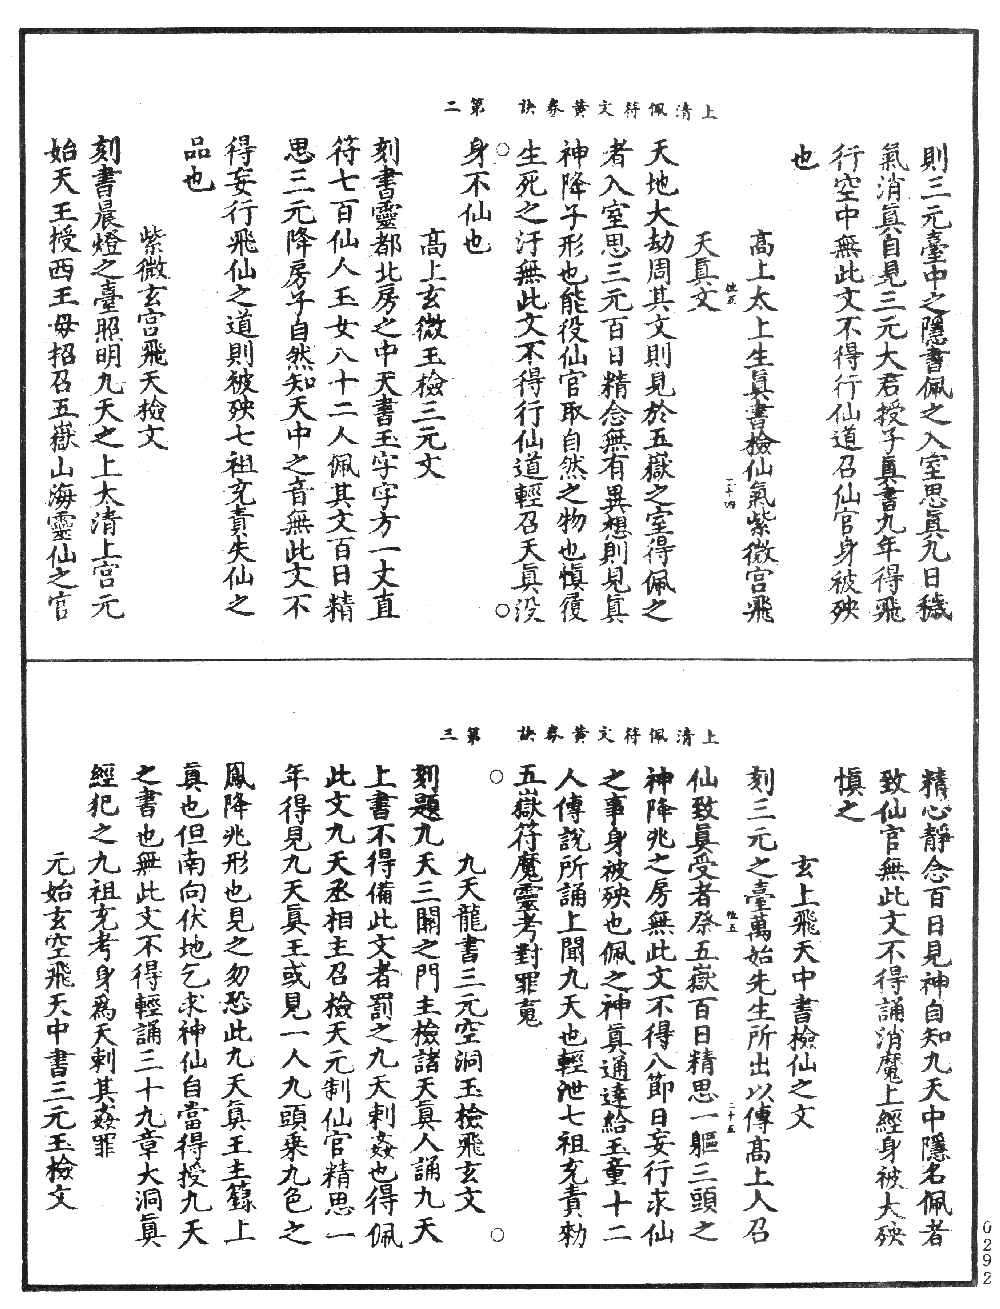 上清佩符文黃券訣　第二
則三元臺中之隱書佩之入室思真九日穢
氣消真自見三元大君授子真書九年得飛
行空中無此文不得行仙道召仙官身被殃
也
高上太上生真書檢仙氣紫微宮飛
天真文
天地大劫周其文則見於五嶽之室得佩之
者入室思三元百日精念無有異想則見真
神降子形也能役仙官取自然之物也慎履
生死之汙無此文不得行仙道輕召天真没
身不仙也
高上玄微玉檢三元文
刻書靈都北房之中天書玉字字方一丈直
符七百仙人玉女八十二人佩其文百日精
思三元降房子自然知天中之音無此文不
得妄行飛仙之道則被殃七祖充責失仙之
品也
紫微玄宮飛天檢文
刻書晨燈之臺照明九天之上太清上宮元
始天王授西王母招召五嶽山海靈仙之官
上清佩符文黃券訣　第三
精心靜念百日見神自知九天中隱名佩者
致仙官無此文不得誦消魔上經身被大殃
慎之
玄上飛天中書檢仙之文
刻三元之臺萬始先生所出以傳高上人召
仙致真受者祭五嶽百日精思一軀三頭之
神降兆之房無此文不得八節日妄行求仙
之事身被殃也佩之神真通達給玉童十二
人傳說所誦上聞九天也輕泄七祖充責勑
五嶽符魔靈考對罪䰟
九天龍書三元空洞玉檢飛玄文
刻題九天三關之門主檢諸天真人誦九天
上書不得備此文者罰之九天刺姦也得佩
此文九天丞相主召檢天元制仙官精思一
年得見九天真王或見一人九頭乘九色之
鳳降兆形也見之勿恐此九天真王主籙上
真也但南向伏地乞求神仙自當得授九天
之書也無此文不得輕誦三十九章大洞真
經犯之九祖充考身為天刺其姦罪
元始玄空飛天中書三元玉檢文
0292